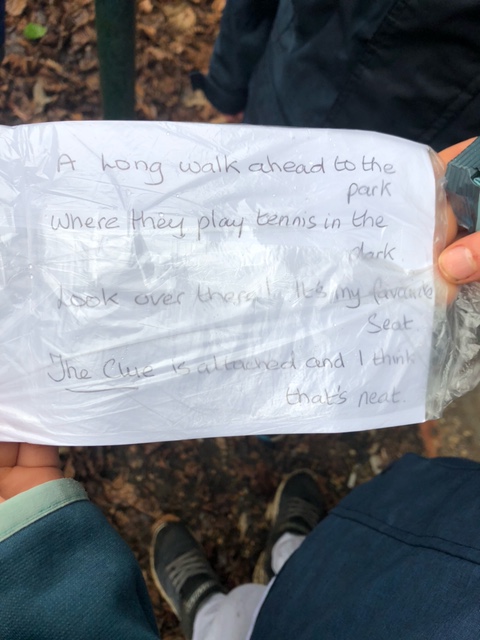 A Long walk ahead to the
park
Where they play tennis in the
dark
Look over there! It's my favourite
Seat
The Clue is attached and I think
that's neat.